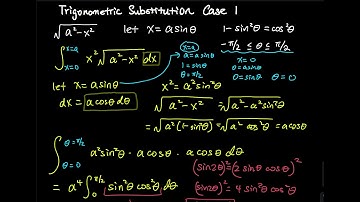 Trigonometric Substitution Case 1
√a²-x² let x = a sinθ 1-sin²θ = cos²θ
-π/2 ≤ θ ≤ π/2
∫ x=a x=0 x² √a²-x² dx
x=a
a = a sinθ
1 = sinθ
θ = π/2
x=0
0 = a sinθ
0 = sinθ θ = 0
let x = a sinθ
dx = a cosθ dθ
x² = a² sin²θ
√a²-x² = √a²-a² sin²θ
= √a²(1-sin²θ) = √a² cos²θ = a cosθ
∫ θ=π/2 θ=0 a² sin²θ · a cosθ · a cosθ dθ
= a⁴ ∫ π/2 0 sin²θ cos²θ dθ
(sin2θ)² = (2 sinθ cosθ)²
(sin2θ)² = 4 sin²θ cos²θ